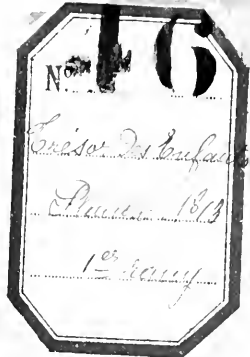 Nº 16
Trésor des Enfants
1813
1er rang